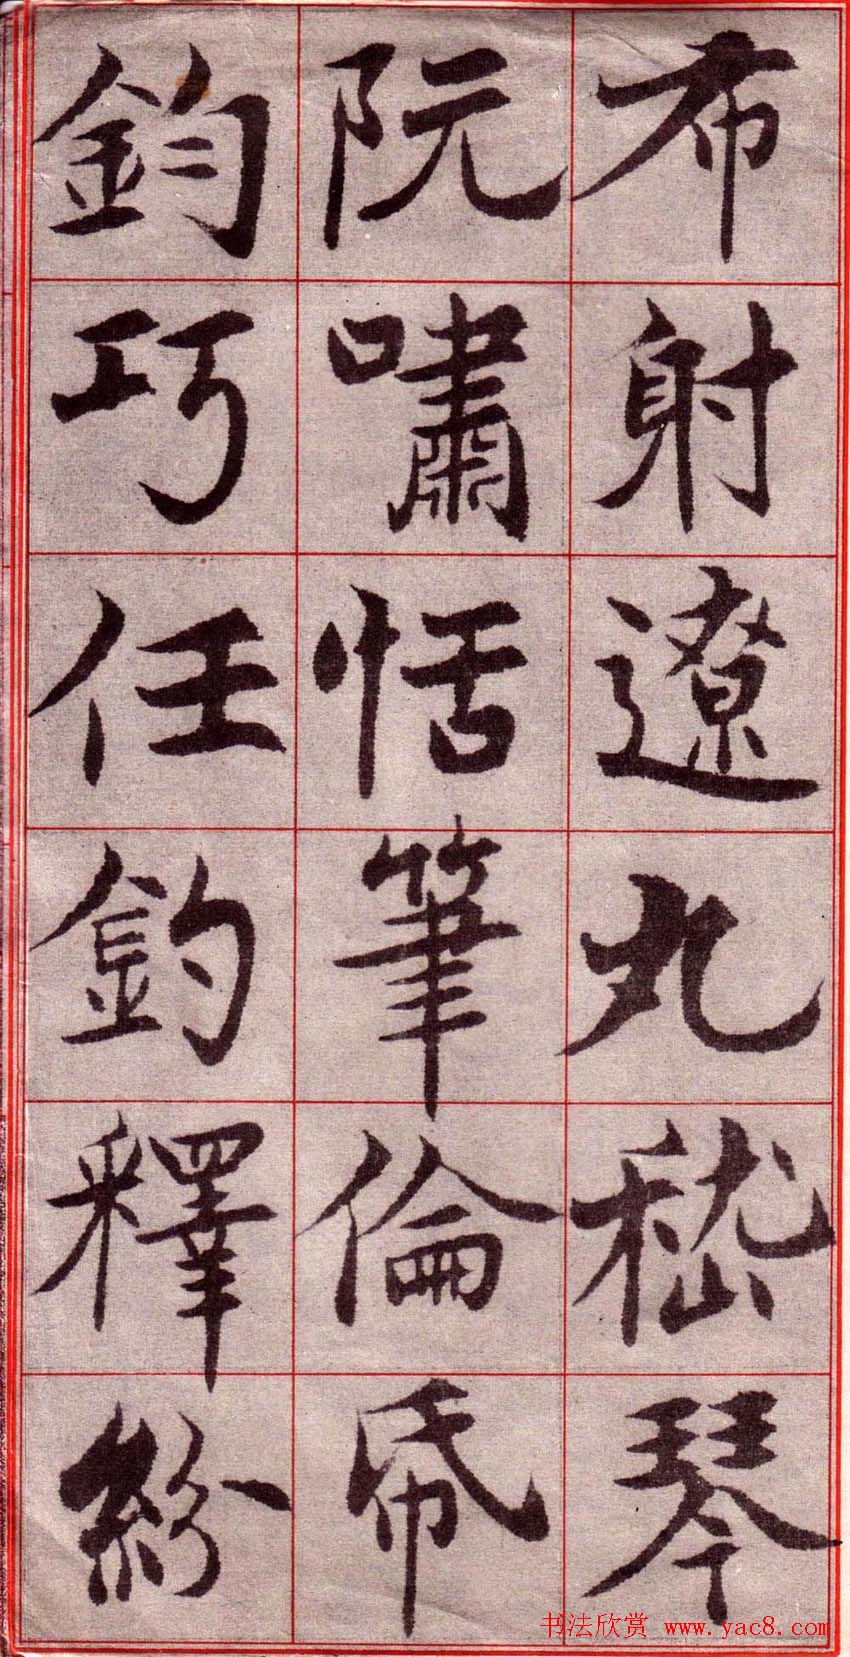 布射遼丸嵇琴
阮嘯恬筆倫帋
鈞巧任釣釋紛
书法欣赏 www.yac8.com